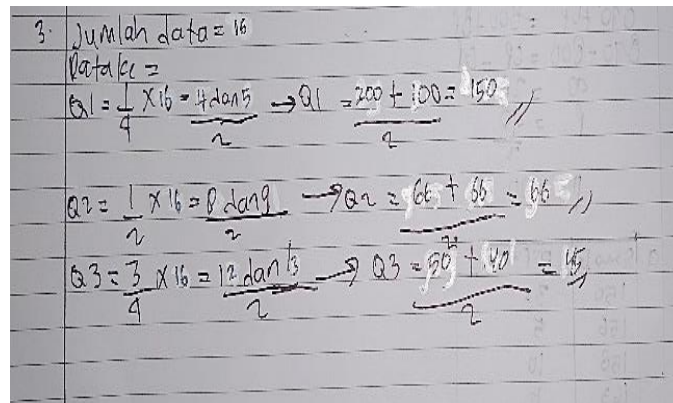 3. Jumlah data = 16
Data ke =
Q1 = 1/4 × 16 = 4 dan 5 / 2 → Q1 = 200 + 100 / 2 = 150 //
Q2 = 1/2 × 16 = 8 dan 9 / 2 → Q2 = 66 + 66 / 2 = 66 //
Q3 = 3/4 × 16 = 12 dan 13 / 2 → Q3 = 50 + 40 / 2 = 45 //